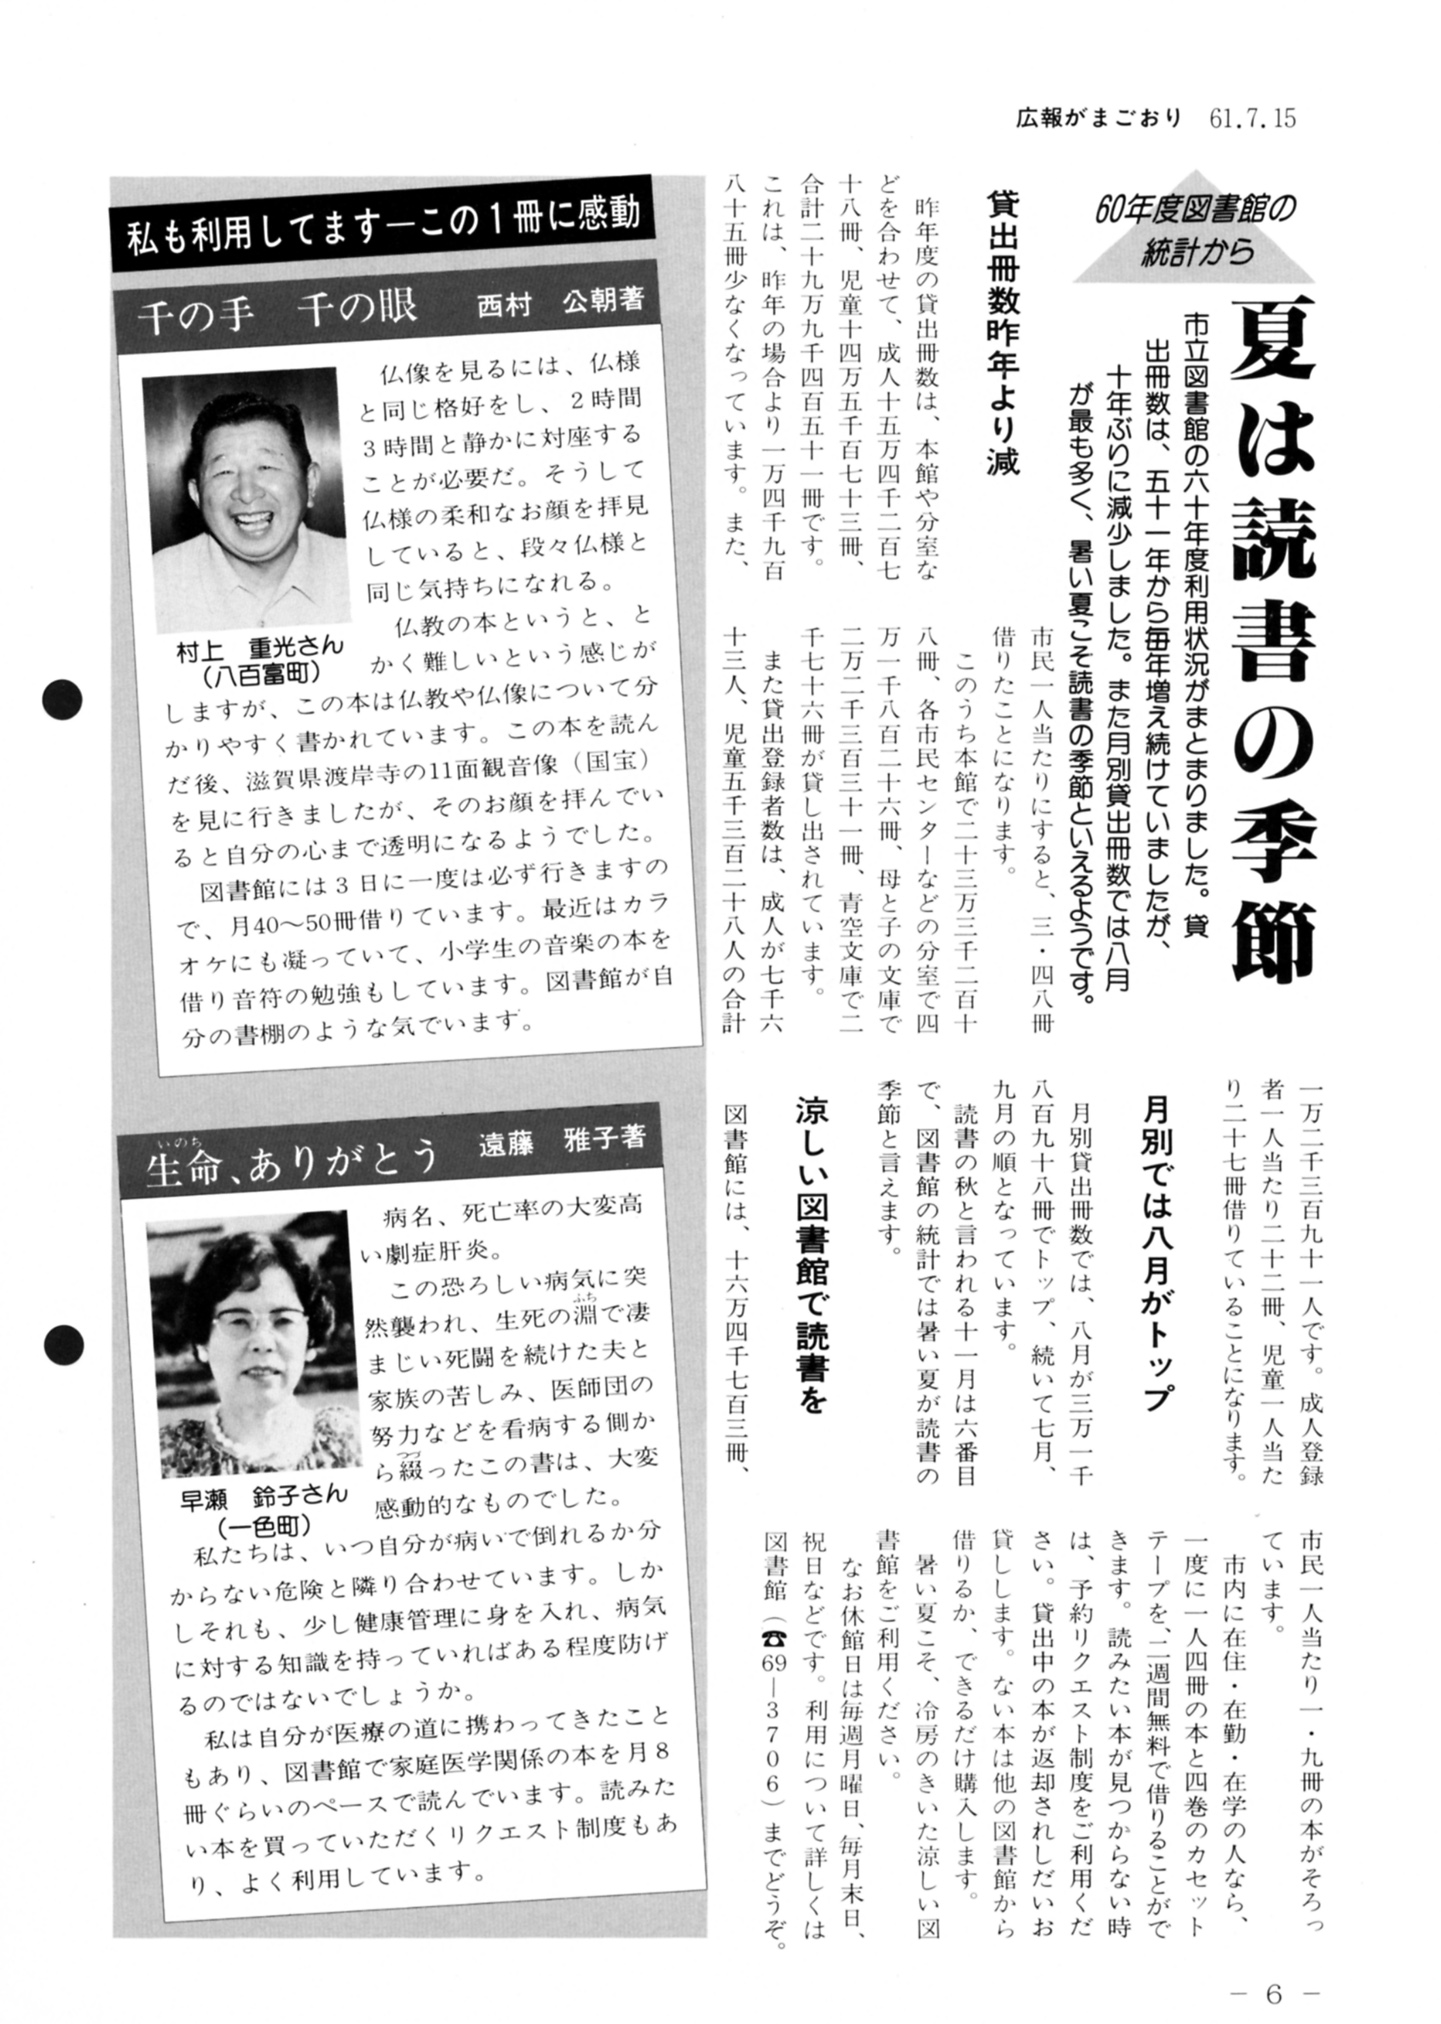 広報がまごおり 61.7.15
60年度図書館の
統計から
夏は読書の季節
市立図書館の六十年度利用状況がまとまりました。貸
出冊数は、五十一年から毎年増え続けていましたが、
十年ぶりに減少しました。また月別貸出冊数では八月
が最も多く、暑い夏こそ読書の季節といえるようです。
貸出冊数昨年より減
昨年度の貸出冊数は、本館や分室な
どを合わせて、成人十五万四千二百七
十八冊、児童十四万五千百七十三冊、
合計二十九万九千四百五十一冊です。
これは、昨年の場合より一万四千九百
八十五冊少なくなっています。また、
市民一人当たりにすると、三・四八冊
借りたことになります。
このうち本館で二十三万三千二百十
八冊、各市民センターなどの分室で四
万一千八百二十六冊、母と子の文庫で
二万二千三百三十一冊、青空文庫で二
千七十六冊が貸し出されています。
また貸出登録者数は、成人が七千六
十三人、児童五千三百二十八人の合計
一万二千三百九十一人です。成人登録
者一人当たり二十二冊、児童一人当た
り二十七冊借りていることになります。
月別では八月がトップ
月別貸出冊数では、八月が三万一千
八百九十八冊でトップ、続いて七月、
九月の順となっています。
読書の秋と言われる十一月は六番目
で、図書館の統計では暑い夏が読書の
季節と言えます。
涼しい図書館で読書を
図書館には、十六万四千七百三冊、
市民一人当たり一・九冊の本がそろっ
ています。
市内に在住・在勤・在学の人なら、
一度に一人四冊の本と四巻のカセット
テープを、二週間無料で借りることがで
きます。読みたい本が見つからない時
は、予約リクエスト制度をご利用くだ
さい。貸出中の本が返却されしだいお
貸しします。ない本は他の図書館から
借りるか、できるだけ購入します。
暑い夏こそ、冷房のきいた涼しい図
書館をご利用ください。
なお休館日は毎週月曜日、毎月末日、
祝日などです。利用について詳しくは
図書館（☎69―3706）までどうぞ。
私も利用してます―この１冊に感動
千の手 千の眼 西村 公朝著
仏像を見るには、仏様
と同じ格好をし、２時間
３時間と静かに対座する
ことが必要だ。そうして
仏様の柔和なお顔を拝見
していると、段々仏様と
同じ気持ちになれる。
仏教の本というと、と
かく難しいという感じが
村上 重光さん
（八百富町）
しますが、この本は仏教や仏像について分
かりやすく書かれています。この本を読ん
だ後、滋賀県渡岸寺の11面観音像（国宝）
を見に行きましたが、そのお顔を拝んでい
ると自分の心まで透明になるようでした。
図書館には３日に一度は必ず行きますの
で、月40〜50冊借りています。最近はカラ
オケにも凝っていて、小学生の音楽の本を
借り音符の勉強もしています。図書館が自
分の書棚のような気でいます。
いのち
生命、ありがとう 遠藤 雅子著
病名、死亡率の大変高
い劇症肝炎。
この恐ろしい病気に突
ふち
然襲われ、生死の淵で凄
まじい死闘を続けた夫と
家族の苦しみ、医師団の
努力などを看病する側か
つづ
ら綴ったこの書は、大変
感動的なものでした。
早瀬 鈴子さん
（一色町）
私たちは、いつ自分が病いで倒れるか分
からない危険と隣り合わせています。しか
しそれも、少し健康管理に身を入れ、病気
に対する知識を持っていればある程度防げ
るのではないでしょうか。
私は自分が医療の道に携わってきたこと
もあり、図書館で家庭医学関係の本を月８
冊ぐらいのペースで読んでいます。読みた
い本を買っていただくリクエスト制度もあ
り、よく利用しています。
－ 6 －